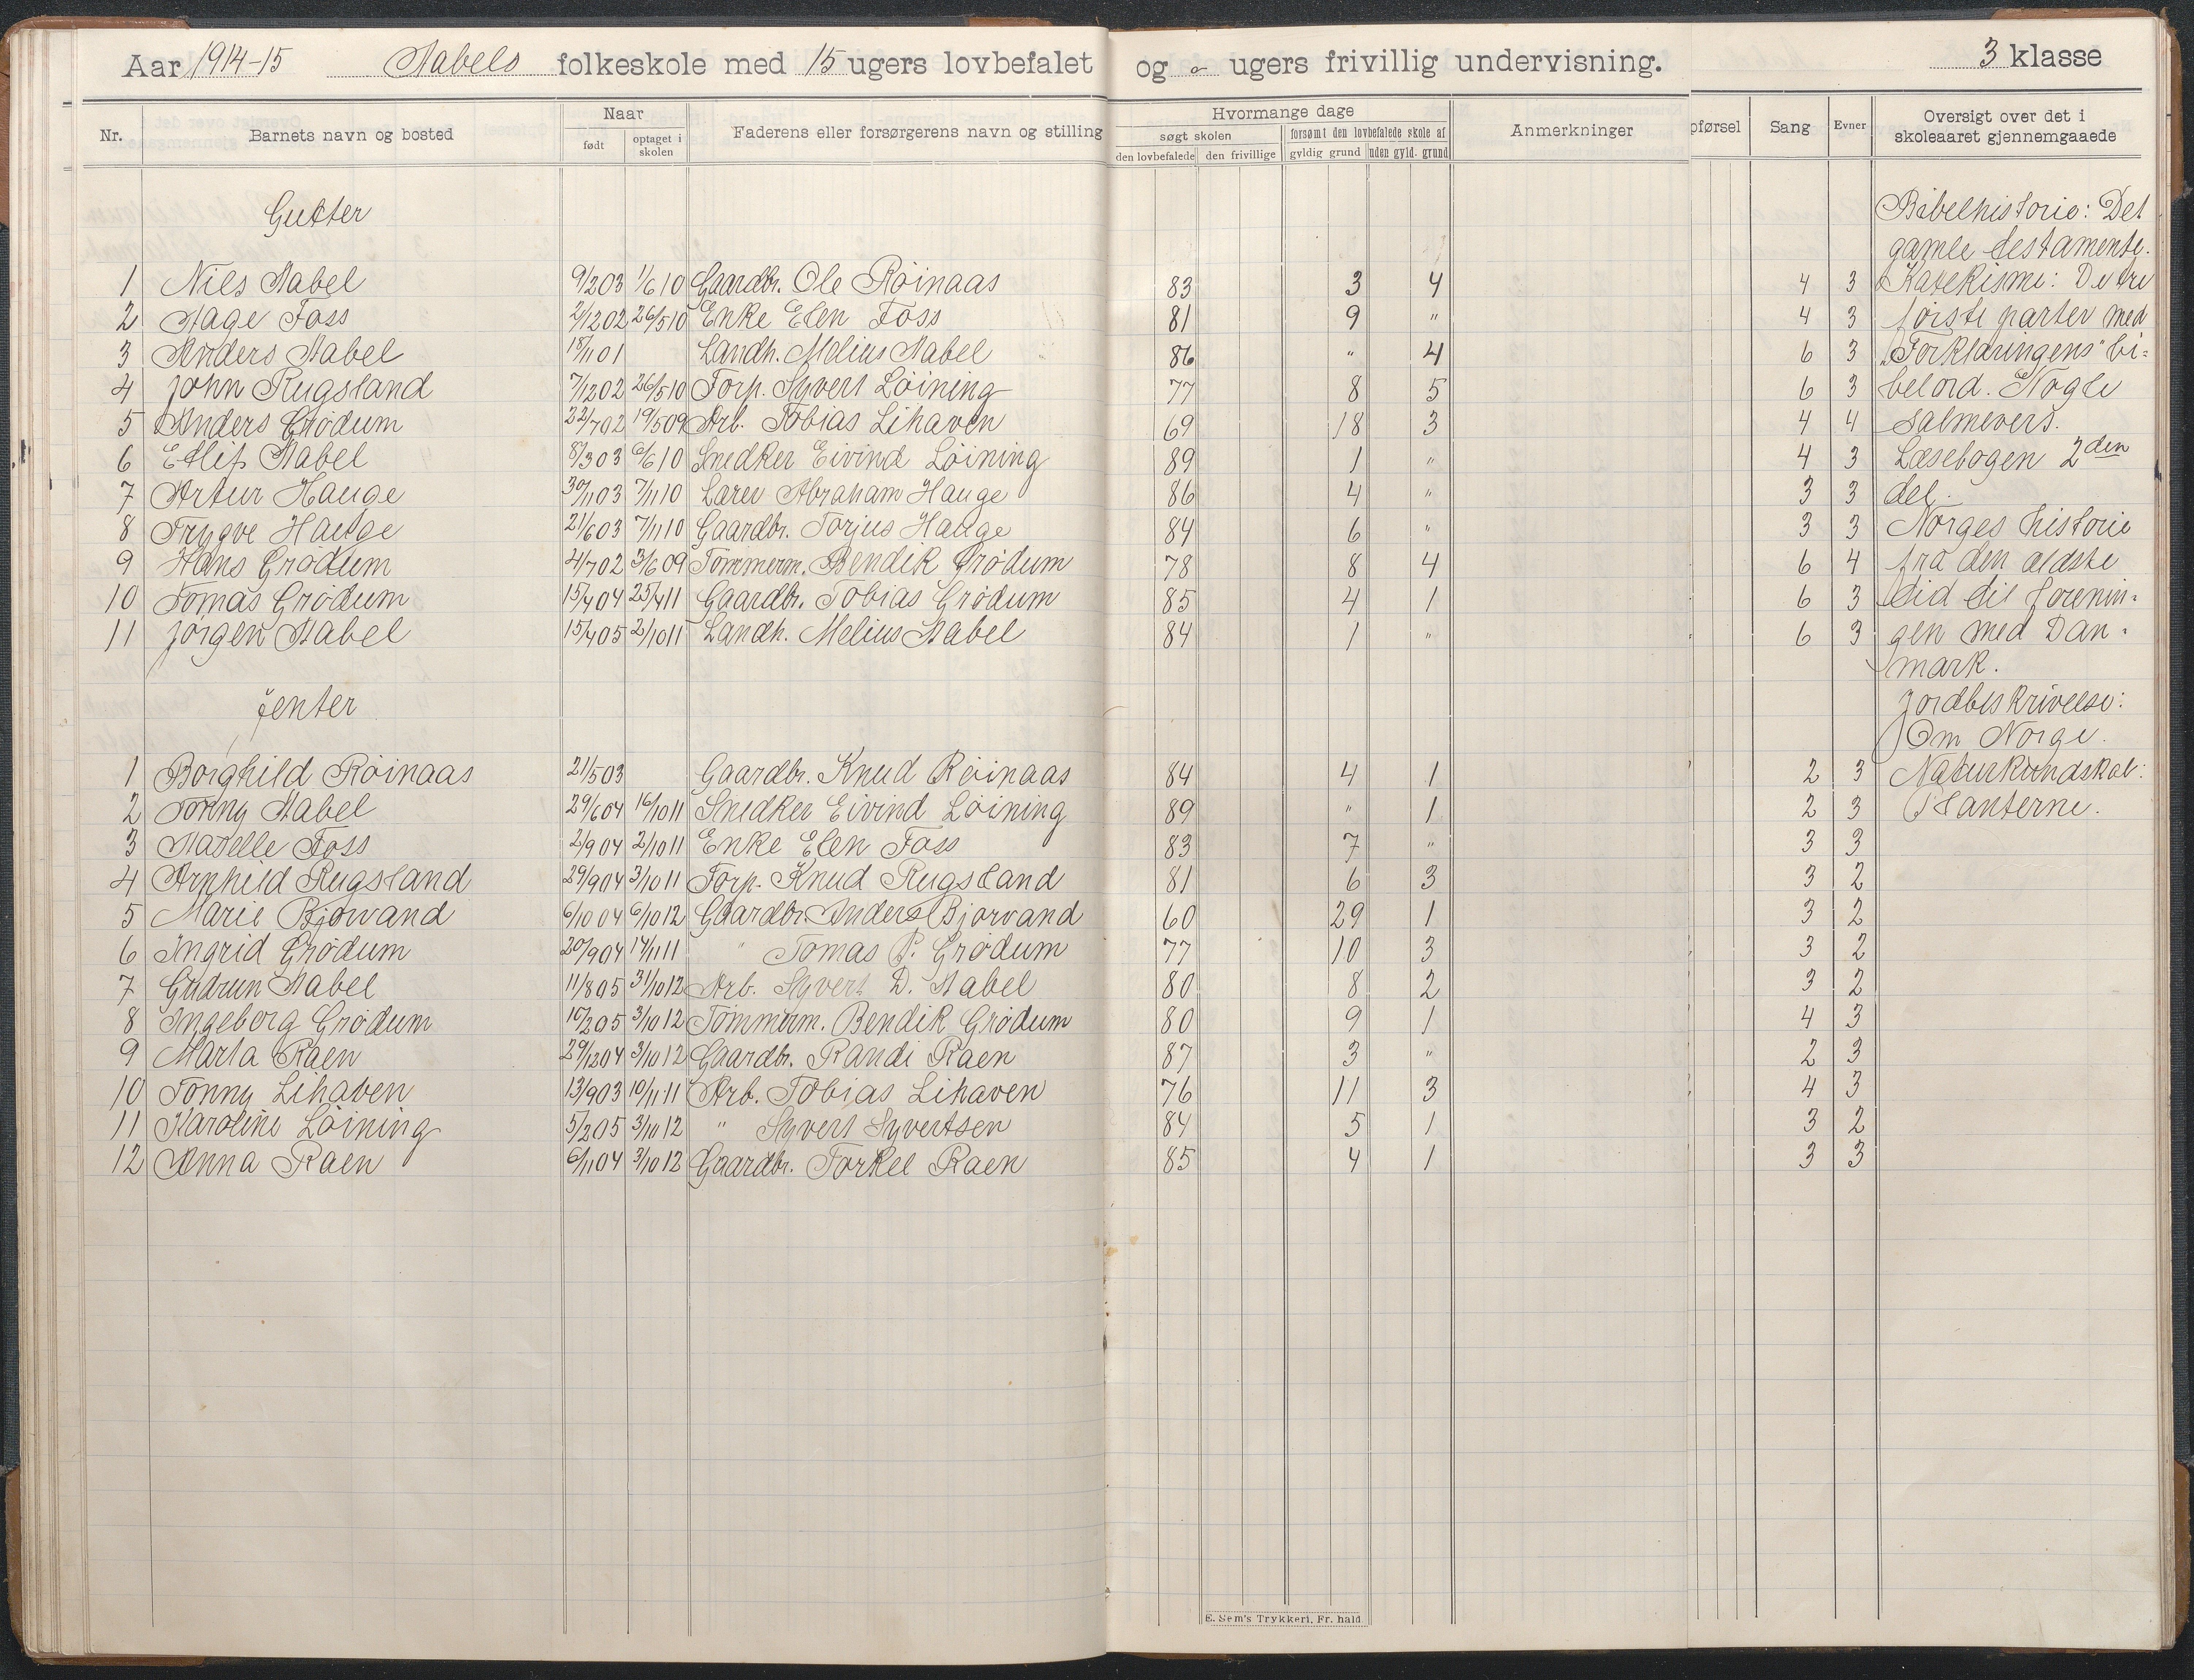 Aar 1914-15 Stabels folkeskole med 15 ugers lovbefalet og - ugers frivillig undervisning. 3 klasse
Nr. Barnets navn og bosted Naar født optaget i skolen Faderens eller forsørgerens navn og stilling Hvormange dage søgt skolen den lovbefalede den frivillige forsømt den lovbefalede skole af gyldig grund uden gyld. grund Anmerkninger pførsel Sang Evner Oversigt over det i skoleaaret gjennemgaaede
Gutter
1 Nils Stabel 9/2 03 1/6 10 Gaardbr. Ole Röinaas 83 3 4 4 3
2 Aage Foss 2/12 02 26/5 10 Enke Elen Foss 81 9 " 4 3
3 Anders Stabel 18/11 01 Landh. Melius Stabel 86 " 4 6 3
4 John Rugsland 7/12 02 26/5 10 Forp. Syvert Löining 77 8 5 6 3
5 Anders Grödum 22/7 02 19/5 09 Arb. Tobias Lihaven 69 18 3 4 4
6 Ellif Stabel 8/3 03 6/6 10 Snedker Eivind Löining 89 1 " 4 3
7 Artur Hauge 30/11 03 7/11 10 Lærer Abraham Hauge 86 4 " 3 3
8 Trygve Hauge 21/6 03 7/11 10 Gaardbr. Torjus Hauge 84 6 " 3 3
9 Hans Grödum 4/7 02 3/6 09 Tömmerm. Bendik Grödum 78 8 4 6 4
10 Tomas Grödum 15/4 04 25/4 11 Gaardbr. Tobias Grödum 85 4 1 6 3
11 Jörgen Stabel 15/4 05 2/10 11 Landh. Melius Stabel 84 1 " 6 3
Jenter
1 Borghild Röinaas 21/5 03 Gaardbr. Knud Röinaas 84 4 1 2 3
2 Tonny Stabel 29/6 04 16/10 11 Snedker Eivind Löining 89 " 1 2 3
3 Foss 2/9 04 2/10 11 Enke Elen Foss 83 7 " 3 3
4 Arnhild Rugsland 29/9 04 3/10 11 Forp. Knud Rugsland 81 6 3 3 2
5 Marie Bjorvand 6/10 04 6/10 12 Gaardbr. Anders Bjorvand 60 29 1 3 2
6 Ingrid Grödum 20/9 04 14/11 11 " Tomas P. Grödum 77 10 3 3 2
7 Gudrun Stabel 11/8 05 31/10 12 Arb. Syvert D. Stabel 80 8 2 3 2
8 Ingeborg Grödum 10/2 05 3/10 12 Tömmerm. Bendik Grödum 80 9 1 4 3
9 Marta Raen 29/12 04 3/10 12 Gaardbr. Randi Raen 87 3 " 2 3
10 Tonny Lihaven 13/9 03 10/11 11 Arb. Tobias Lihaven 76 11 3 4 3
11 Karoline Löining 5/2 05 3/10 12 " Syvert Syvertsen 84 5 1 3 2
12 Anna Raen 6/11 04 3/10 12 Gaardbr. Torkel Raen 85 4 1 3 3
Bibelhistorie: Det
gamle testamente.
Katekisme: De tre
förste parter med
"Forklaringens" bi-
belord. Nogle
salmevers.
Læsebogen 2den
del.
Norges historie
fra den ældste
tid til forenin-
gen med Dan-
mark.
Jordbeskrivelse:
Om Norge.
Naturkundskab:
Planterne.
E. Sem's Trykkeri, Fr. hald